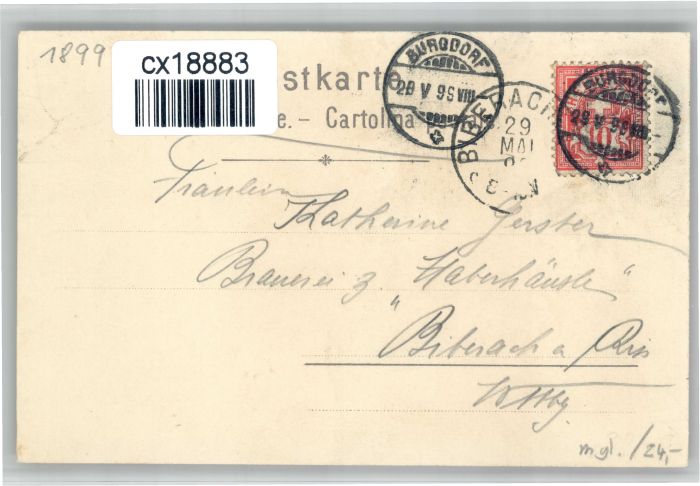 1899
cx18883
stkarte
e. - Cartolina
BURGDORF
29 V 99 VIII
BIBERACH
29
MAI
BURGDORF
29 V 99 VIII
10
Fräulein
Katherine Gerster
Brauerei z. "Haberhäusle"
Biberach a Riss
Wttbg.
mgl. /24,-